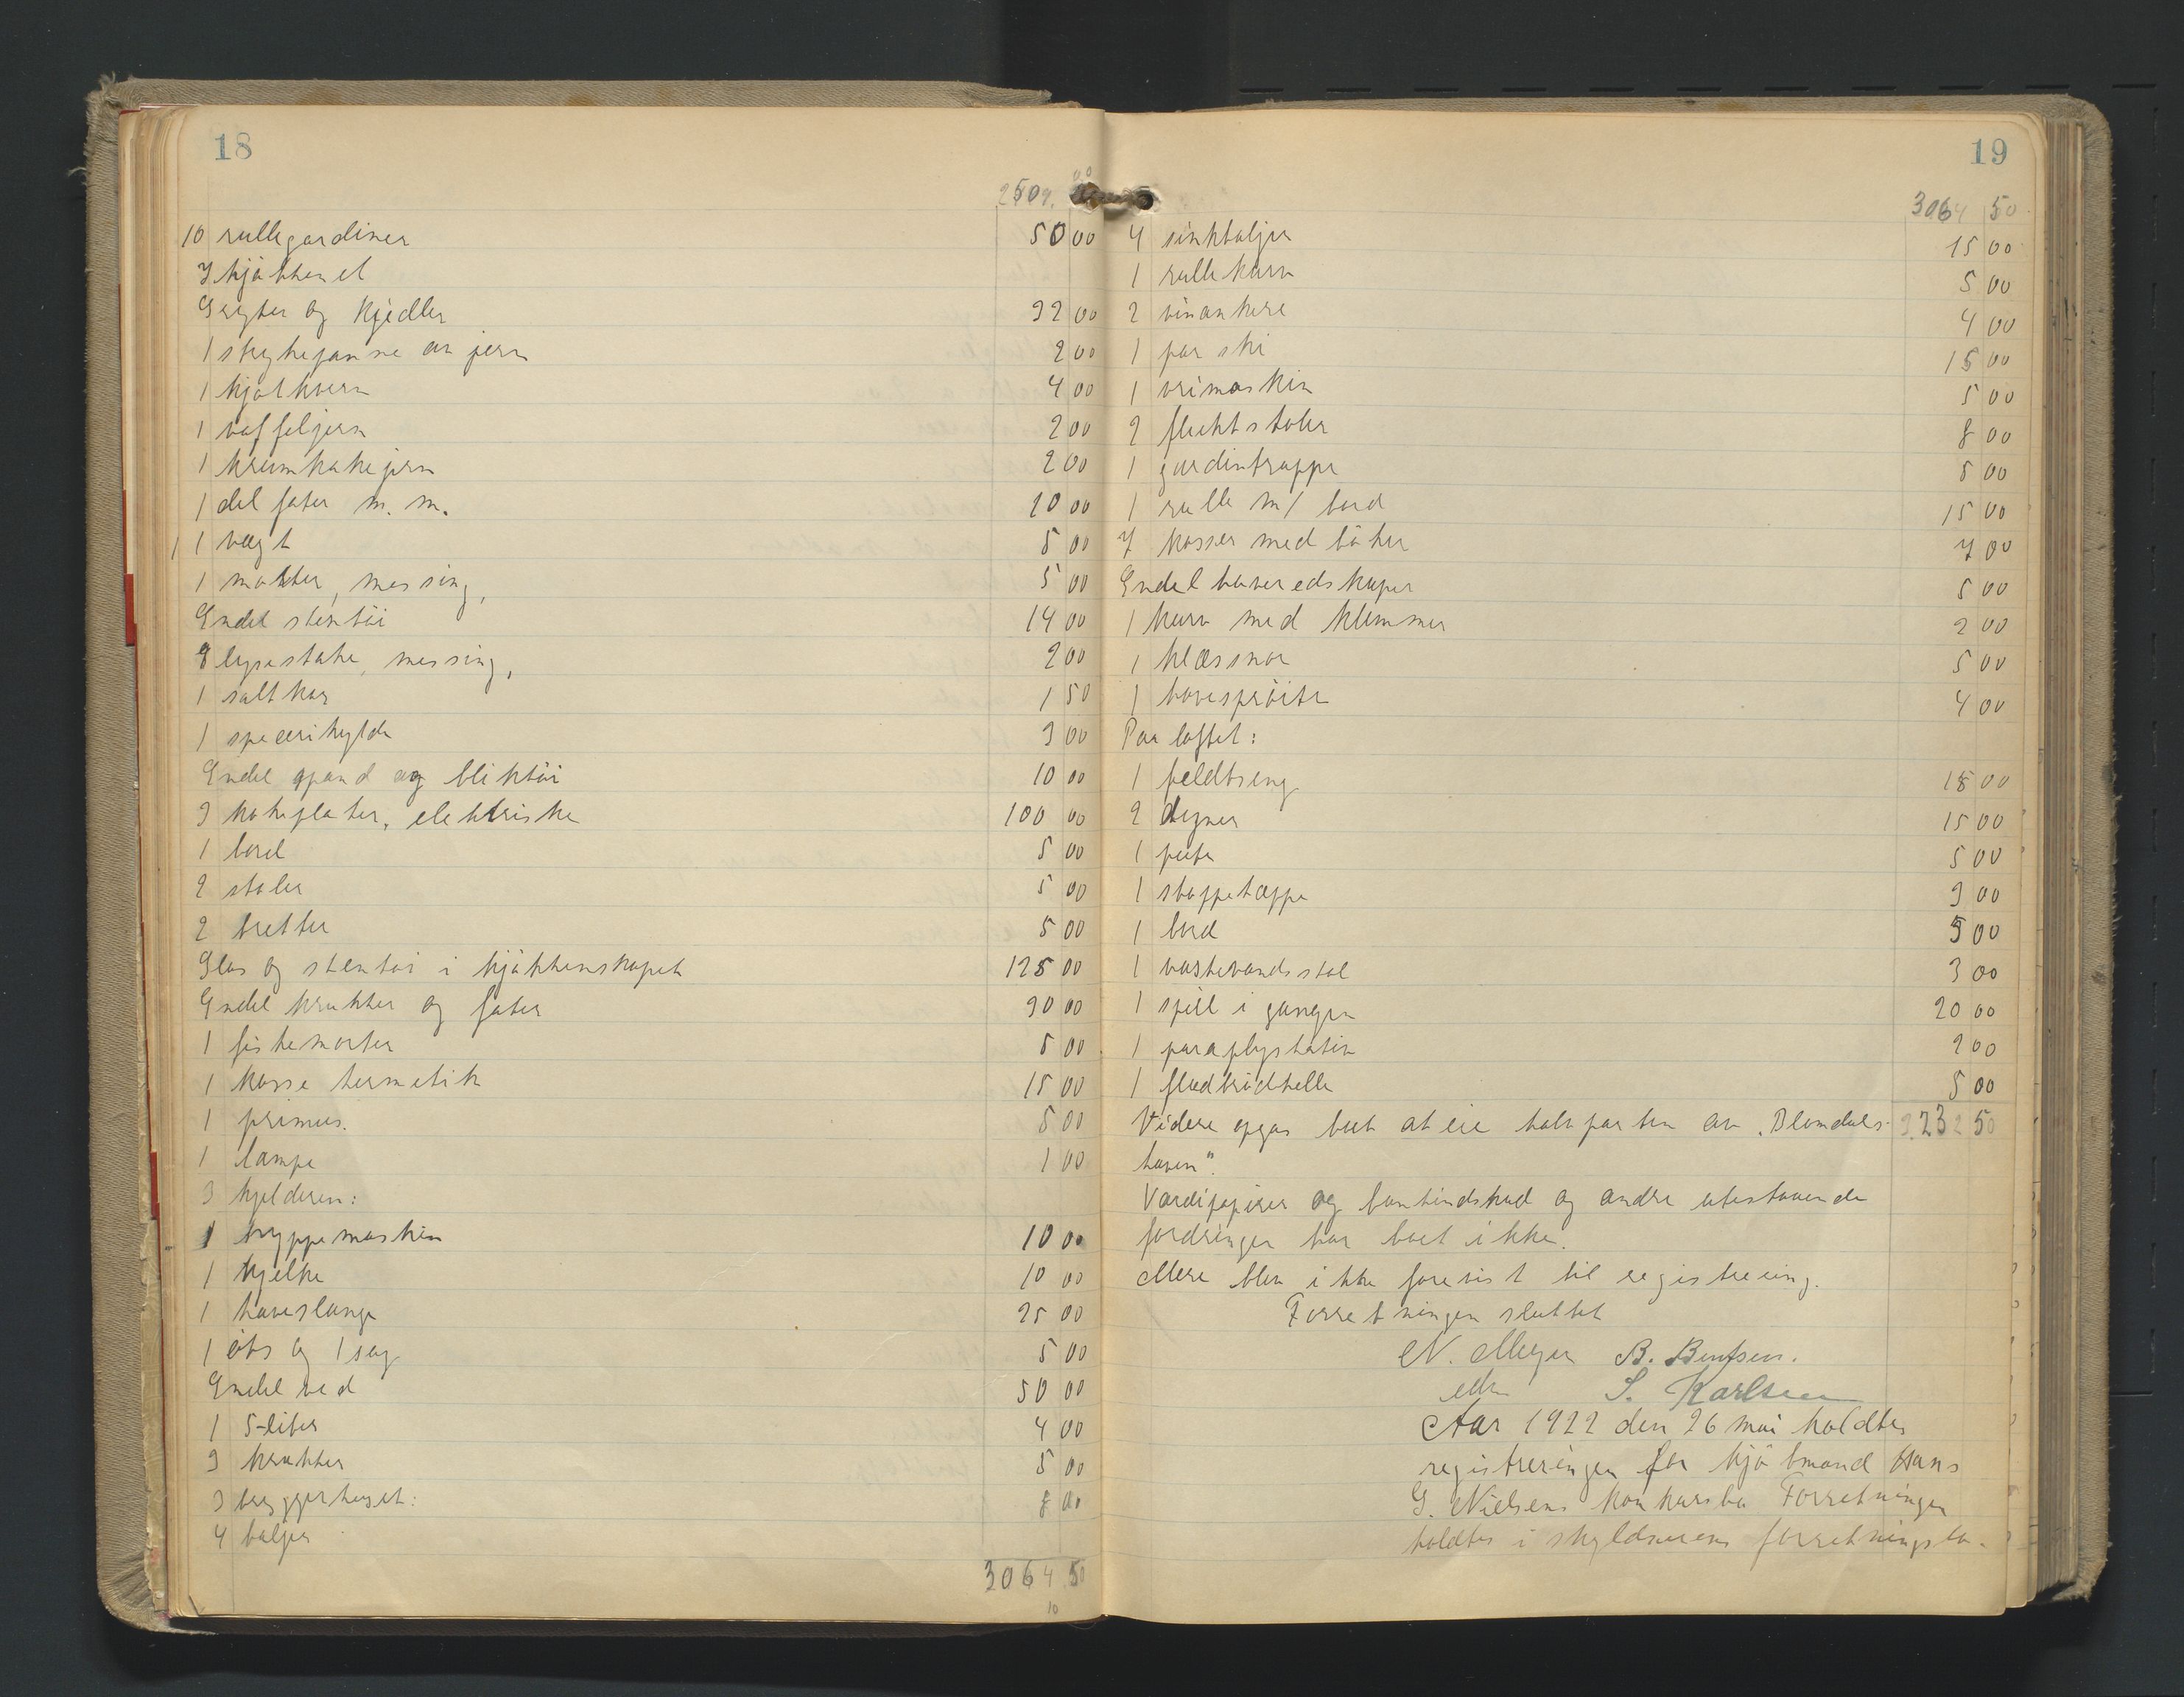 18
2509. 00
10 rullegardiner 50 00
I kjøkkenet
Gryter og kjedler 32 00
1 stekepanne av jern 2 00
1 kjøtkvern 4 00
1 vaffeljern 2 00
1 krumkakejern 2 00
1 del fater m. m. 10 00
1 vægt 5 00
1 morter, messing, 5 00
Endel stentøi 14 00
lysestake, messing, 2 00
1 saltkar 1 50
1 specerihylde 3 00
Endel spand og bliktøi 10 00
3 kokeplater, elektriske 100 00
1 bord 5 00
2 stoler 5 00
2 bretter 5 00
Glas og stentøi i kjøkkenskapet 125 00
Endel krukker og fater 30 00
1 fiskemorter 5 00
1 kasse hermetik 15 00
1 primus. 5 00
1 lampe 1 00
I kjelderen:
1 hyppemaskin 10 00
1 kjelke 10 00
1 haveslange 25 00
1 øks og 1 sag 5 00
Endel ved 50 00
1 5-liter 4 00
3 krukker 5 00
I bryggerhuset: 8 00
4 baljer
3064 50
10
19
3064 50
4 sinkbaljer 15 00
1 rullekurv 5 00
2 vinankere 4 00
1 par ski 15 00
1 vrimaskin 5 00
2 fluktstoler 8 00
1 gardintrappe 5 00
1 rulle m/ bord 15 00
7 kasser med bøker 7 00
Endel haveredskaper 5 00
1 kurv med klemmer 2 00
1 klæssnor 5 00
1 havesprøite 4 00
Paa loftet:
1 feldtseng 15 00
2 dyner 15 00
1 pute 5 00
1 stoppetæppe 3 00
1 bord 5 00
1 vaskevandsstol 3 00
1 speil i gangen 20 00
1 paraplystativ 2 00
1 fladbrødhelle 5 00
Videre opgas boet at eie halvparten av "Blomdals- 3.232 50
haven".
Værdipapirer og bankindskud og andre utestaaende
fordringer har boet ikke.
Mere blev ikke forevist til registrering.
Forretningen sluttet
N. Meyer B. Bentsen.
edm S. Karlsen
Aar 1922 den 26 mai holdtes
registreringen for kjøbmand Hans
G. Nielsens konkursbo Forretningen
holdtes i skyldnerens forretningslo-